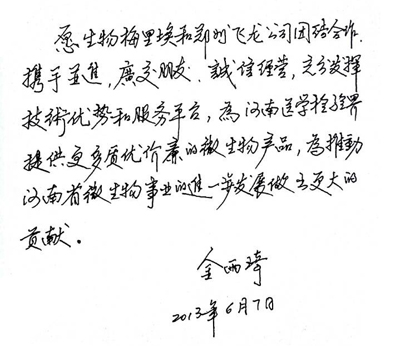 愿生物梅里埃和郑州飞龙公司团结合作.
携手並進，廣交朋友.誠信经营，充分发挥
技術优势和服务平台，為河南医学检验界
提供更多质优价廉的微生物产品，為推動
河南省微生物事业的進一步发展做出更大的
贡献.
2013年6月7日